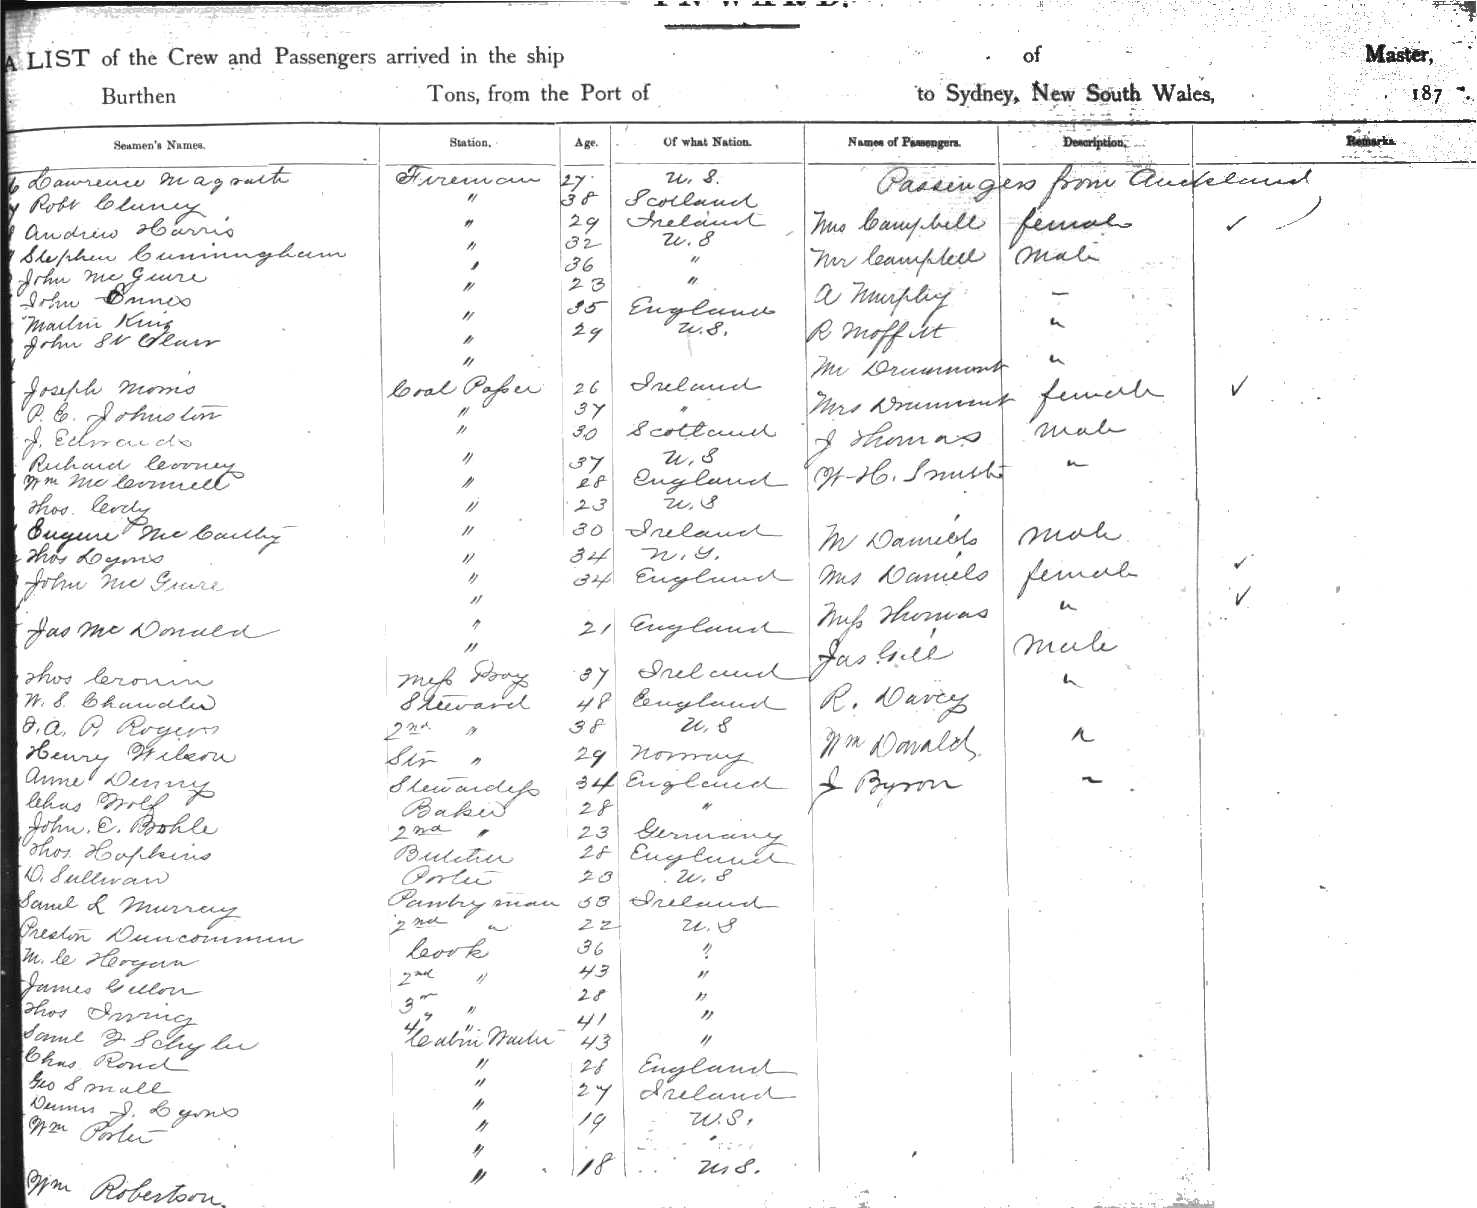 INWARD.
A LIST of the Crew and Passengers arrived in the ship of Master,
Burthen Tons, from the Port of to Sydney, New South Wales, 187 .
Seamen's Names. Station. Age. Of what Nation. Names of Passengers. Description. Remarks.
Lawrence Magrath Fireman 27 U.S. Passengers from Auckland
Robt Cluney " 38 Scotland
Andrew Harris " 29 Ireland Mrs Campbell female ✓
Stephen Cunningham " 32 U.S Mr Campbell Male
John McGuire " 36 "
John Ennes " 23 " A Murphy —
Martin King " 35 England R Moffitt "
John St Clair " 29 U.S. Mr Drummont "
Joseph Morris Coal Passer 26 Ireland Mrs Drummont female ✓
P. C. Johnston " 37 "
J. Edwards " 30 Scotland J Thomas male
Richard Cooney " 37 U.S W. H. Smith "
Wm McConnell " 28 England
Thos. Cody " 23 U.S
Eugene McCarthy " 30 Ireland M Daniels male
Thos Lyons " 34 N.Y. Mrs Daniels female ✓
John McGuire " 34 England Miss Thomas " ✓
Jas McDonald " 21 England Jas Gill Male
Thos Cronin Mess Boy 37 Ireland "
W. S. Chandler Steward 48 England R. Darcy
F. A. P. Rogers 2nd " 38 U.S
Henry Wilson Str " 29 Norway Wm Donald "
Anne Denny Stewardess 34 England J Byron "
Chas Wolf Baker 28 "
John. E. Bohle 2nd " 23 Germany
Thos. Hopkins Butcher 28 England
D. Sullivan Porter 23 U.S
Saml L Murray Pantryman 33 Ireland
Preston Duncommun 2nd " 22 U.S
M. C Hogan Cook 36 "
James Gillon 2nd " 43 "
Thos Irving 3r " 28 "
Saml F Schyler 4 " 41 "
Chas Rond Cabin Waiter 43 "
Geo Small " 28 England
Dennis J. Lyons " 27 Ireland
Wm Porter " 19 U.S.
Wm Robertson. " 18 U.S.